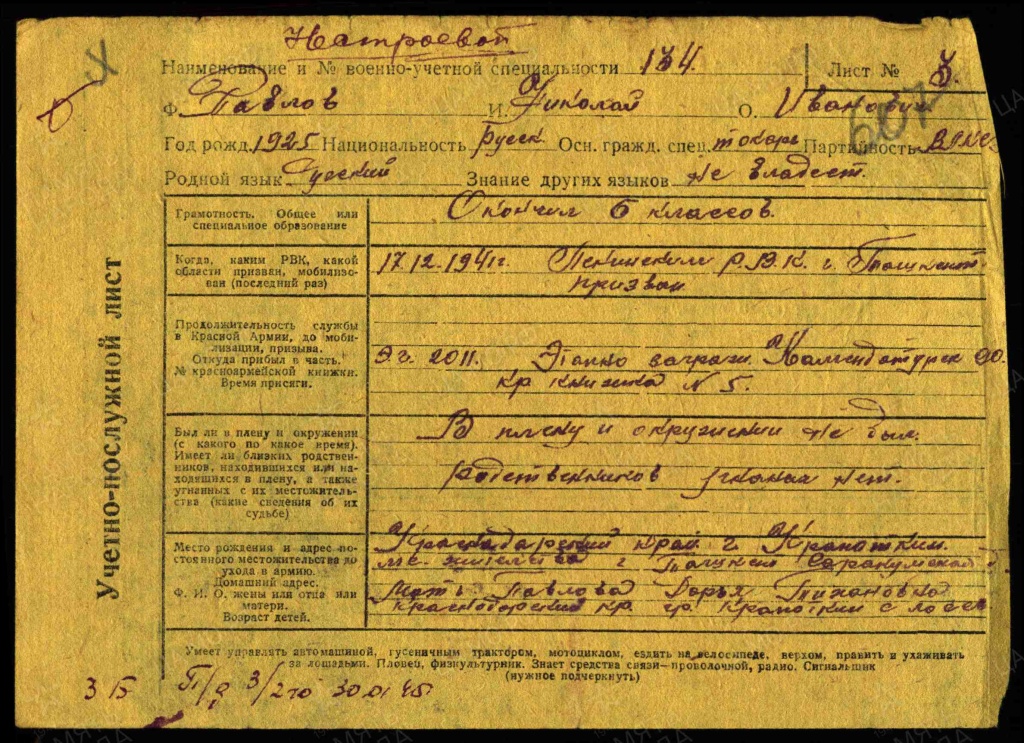 Нестроевой
Наименование и № военно-учетной специальности 134. Лист № 3.
Ф. Павлов И. Николай О. Иванович
607
Год рожд. 1925 Национальность Русск Осн. гражд. спец. токарь Партийность ВЛКС
Родной язык Русский Знание других языков не владеет.
Учетно-послужной лист
Грамотность. Общее или специальное образование
Окончил 6 классов.
Когда, каким РВК, какой области призван, мобилизован (последний раз)
17.12.1941г. Р.В.К. г. Ташкент
призван
Продолжительность службы в Красной Армии, до мобилизации, призыва.
Откуда прибыл в часть.
№ красноармейской книжки.
Время присяги.
кр книжка № 5.
Был ли в плену и окружении (с какого по какое время). Имеет ли близких родственников, находившихся или находящихся в плену, а также угнанных с их местожительства (какие сведения об их судьбе)
В плену и окружении не был.
родственников угнаных нет.
Место рождения и адрес постоянного местожительства до ухода в армию.
Домашний адрес.
Ф. И. О. жены или отца или матери.
Возраст детей.
Краснодарский край г. Кропоткин.
г Ташкент
Мать Павлова Дарья Тихановна
Умеет управлять автомашиной, гусеничным трактором, мотоциклом, ездить на велосипеде, верхом, править и ухаживать
за лошадьми. Пловец, физкультурник. Знает средства связи—проволочной, радио. Сигнальщик
(нужное подчеркнуть)
3 Б